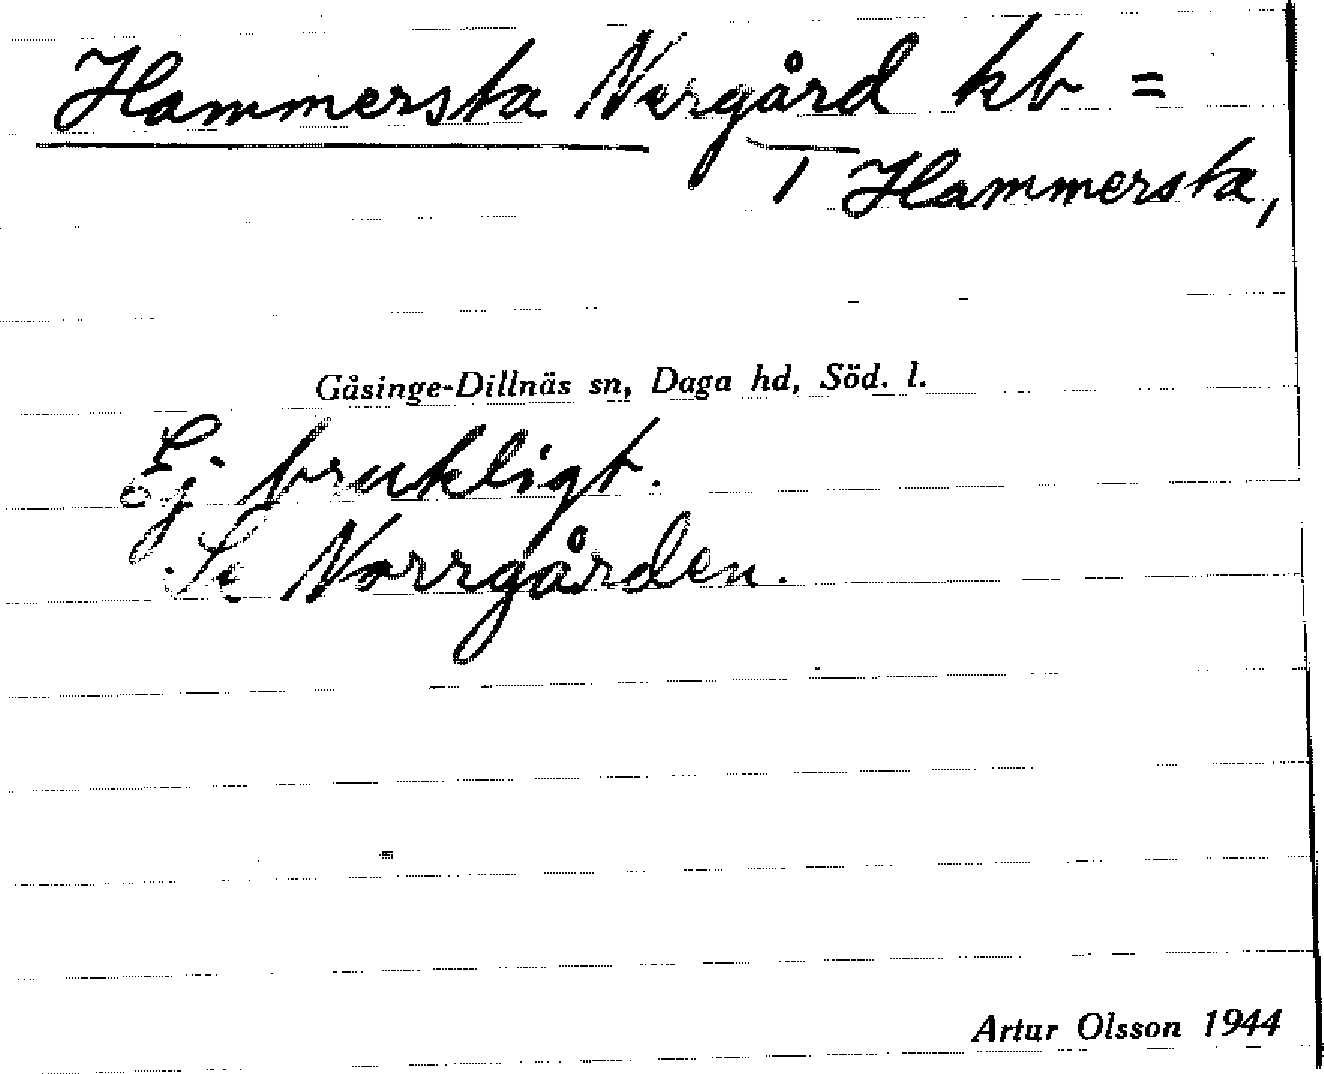 Hammersta Norgård kb =
1 Hammersta,
Gåsinge-Dillnäs sn, Daga hd, Söd. l.
Ej brukligt.
Se Norrgården.
Artur Olsson 1944